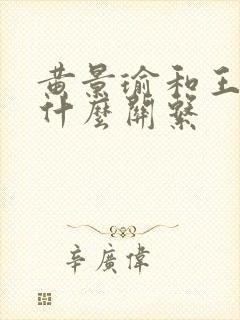 黄景瑜和王
什麼關繫
辛廣偉